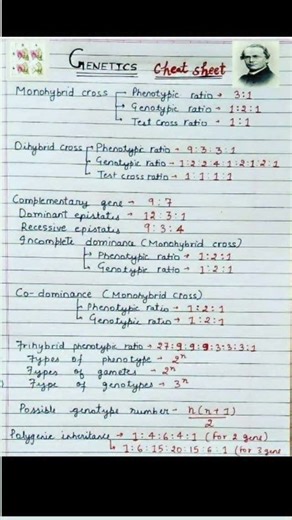 GENETICS Cheat sheet
Monohybrid cross Phenotypic ratio → 3:1
Genotypic ratio → 1:2:1
Test cross ratio → 1:1
Dihybrid cross Phenotypic ratio → 9:3:3:1
Genotypic ratio → 1:2:2:4:1:2:1:2:1
Test cross ratio → 1:1:1:1
Complementary gene → 9:7
Dominant epistates → 12:3:1
Recessive epistates 9:3:4
Incomplete dominance (Monohybrid cross)
Phenotypic ratio → 1:2:1
Genotypic ratio → 1:2:1
Co-dominance (Monohybrid cross)
Phenotypic ratio → 1:2:1
Genotypic ratio → 1:2:1
Trihybrid phenotypic ratio → 27:9:9:9:3:3:3:1
Types of phenotype → 2ⁿ
Types of gametes → 2ⁿ
Type of genotypes → 3ⁿ
Possible genotype number - n(n+1)/2
Polygenic inheritance → 1:4:6:4:1 (for 2 gene)
1:6:15:20:15:6:1 (for 3 gene